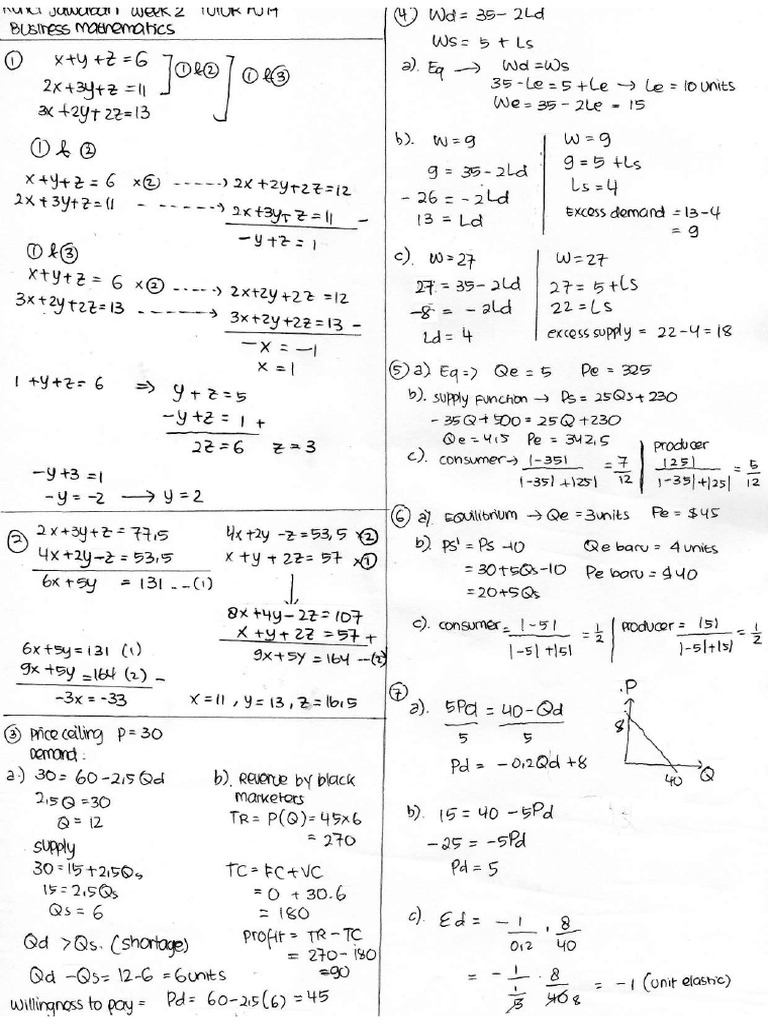 Kunci Jawaban Week 2 TUTOR FUM
BUSINESS MATHEMATICS
① x+y+z=6
2x+3y+z=11 ①&②
3x+2y+2z=13 ①&③
① & ②
x+y+z=6 ×② -----→ 2x+2y+2z=12
2x+3y+z=11 - -----→ 2x+3y+z=11 -
-y+z=1
① & ③
x+y+z=6 ×② ----→ 2x+2y+2z=12
3x+2y+2z=13 -----→ 3x+2y+2z=13 -
-x=-1
x=1
1+y+z=6 ⇒ y+z=5
-y+z=1 +
2z=6 z=3
-y+3=1
-y=-2 → y=2
② 2x+3y+z=77,5
4x+2y-z=53,5
6x+5y =131 --(1)
4x+2y-z=53,5 ×②
x+y+2z=57 ×①
↓
8x+4y-2z=107
x+y+2z=57 +
9x+5y=164 --(2)
6x+5y=131 (1)
9x+5y=164 (2) -
-3x=-33 x=11, y=13, z=16,5
③ Price ceiling P=30
Demand:
a.) 30=60-2,5Qd
2,5Q=30
Q=12
supply
30=15+2,5Qs
15=2,5Qs
Qs=6
Qd >Qs. (shortage)
Qd -Qs=12-6=6units
willingness to pay= Pd=60-2,5(6)=45
b). Revenue by black
marketers
TR= P(Q)=45x6
=270
TC=FC+VC
=0+30.6
=180
profit= TR-TC
=270-180
=90
④ Wd=35-2Ld
Ws=5+Ls
a). Eq → Wd=Ws
35-Le=5+Le → Le=10units
We=35-2Le=15
b). W=9
9=35-2Ld
-26=-2Ld
13=Ld
W=9
9=5+Ls
Ls=4
Excess demand=13-4
=9
c). W=27
27=35-2Ld
-8=-2Ld
Ld=4
W=27
27=5+Ls
22=Ls
excess supply= 22-4=18
⑤ a) Eq=> Qe=5 Pe=325
b). supply function → Ps=25Qs+230
-35Q+500=25Q+230
Qe=4,5 Pe=342,5
c). consumer→ |-35|/|-35|+|25| =7/12
producer |25|/|-35|+|25| =5/12
⑥ a). Equilibrium → Qe=3units Pe=$45
b). Ps'=Ps-10 Qe baru=4units
=30+5Qs-10 Pe baru=$40
=20+5Qs
c). consumer= |-5|/|-5|+|5| =1/2
producer= |5|/|-5|+|5| =1/2
⑦
a). 5Pd/5 = 40-Qd/5
Pd=-0,2Qd+8
P
8
40 Q
b). 15=40-5Pd
-25=-5Pd
Pd=5
c). Ed= -1/0,2 . 8/40
= -1/(1/5) . 8/40 8 = -1 (unit elastic)